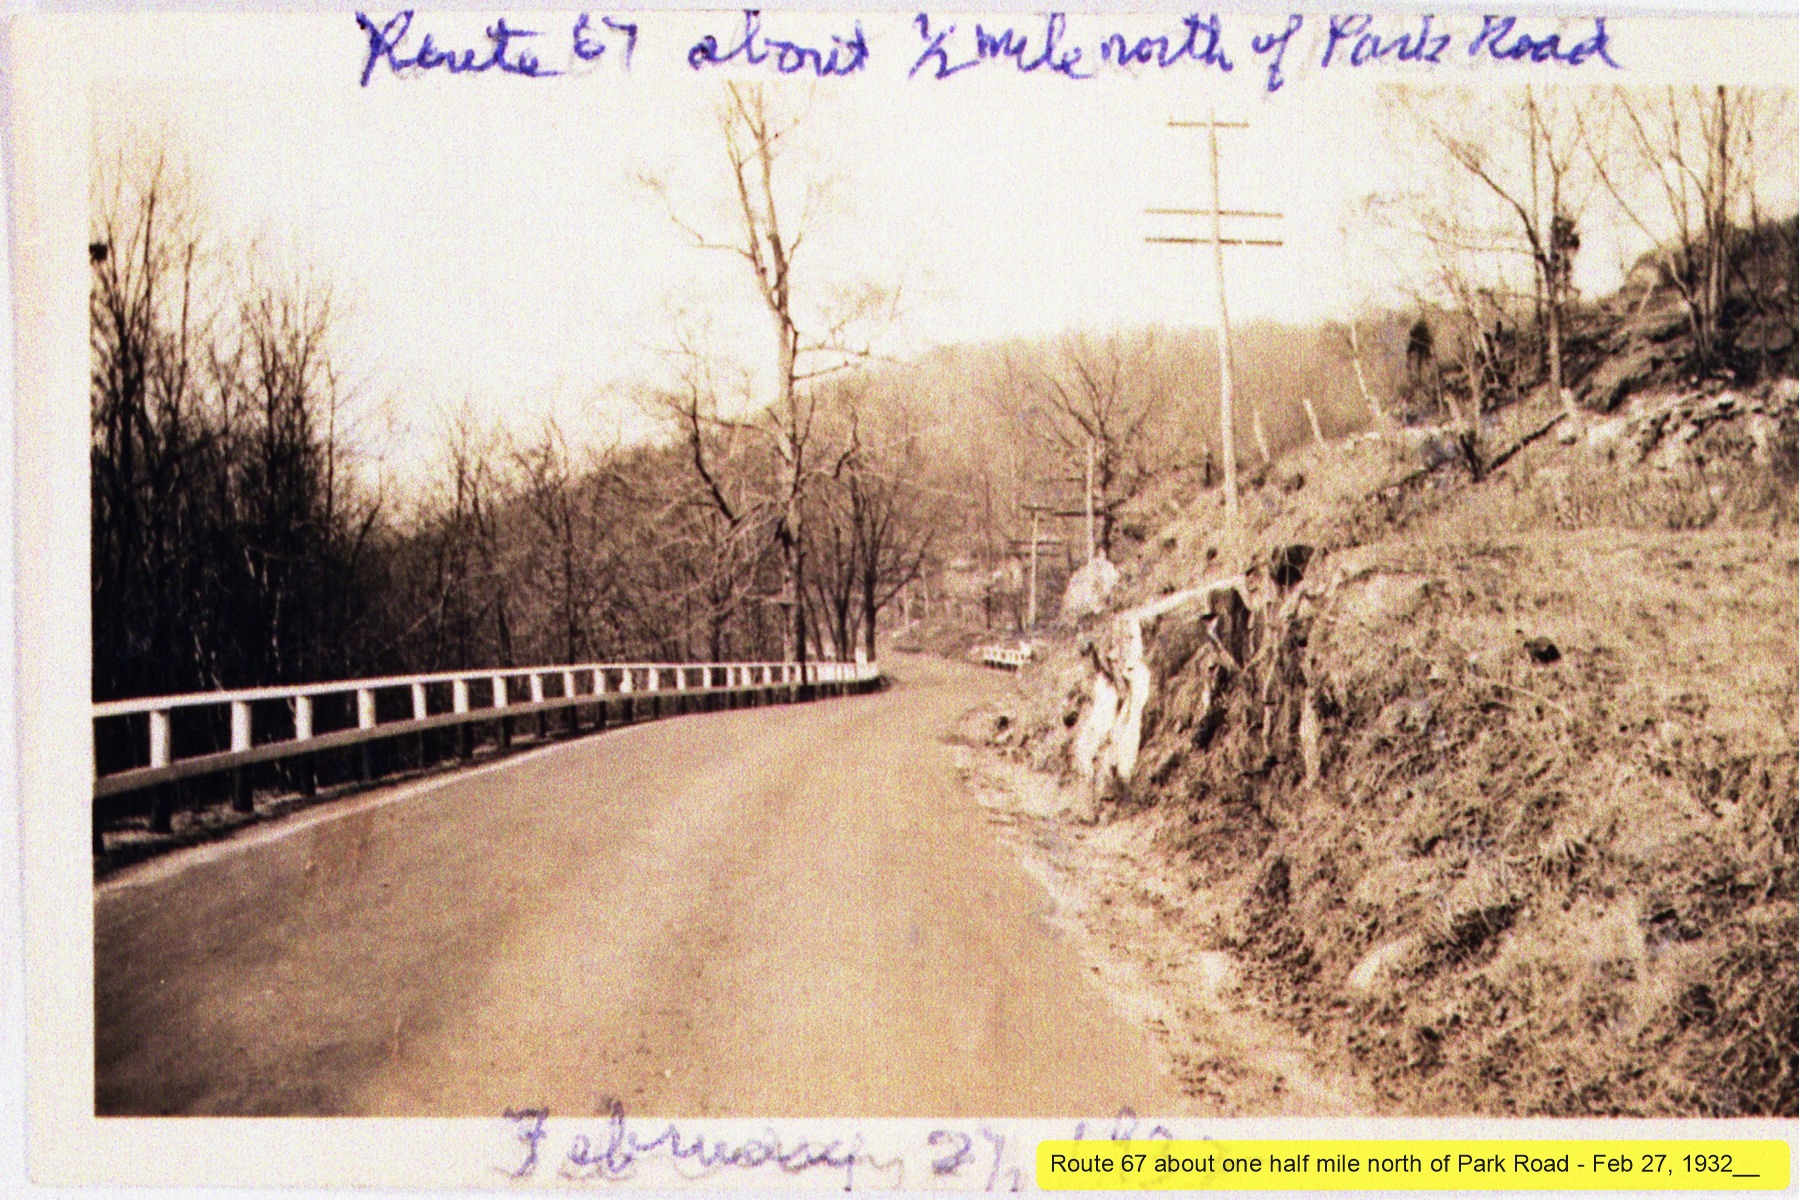 Route 67 about 1/2 mile north of Park Road
February 27, 193
Route 67 about one half mile north of Park Road - Feb 27, 1932__